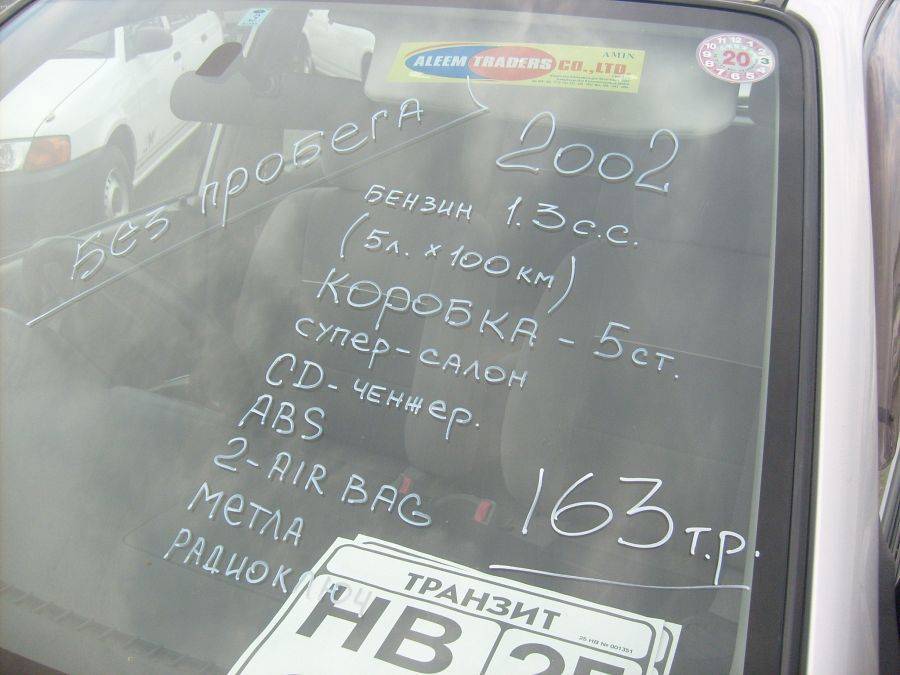 AMIN
ALEEM TRADERS CO.,LTD.
20
без пробега
2002
бензин 1.3 с.с.
(5л. x 100 км)
Коробка - 5 ст.
супер-салон
CD-ченжер.
ABS
2-AIR BAG
метла
радиоключ
163 т.р.
ТРАНЗИТ
25 НВ № 001351
НВ 25